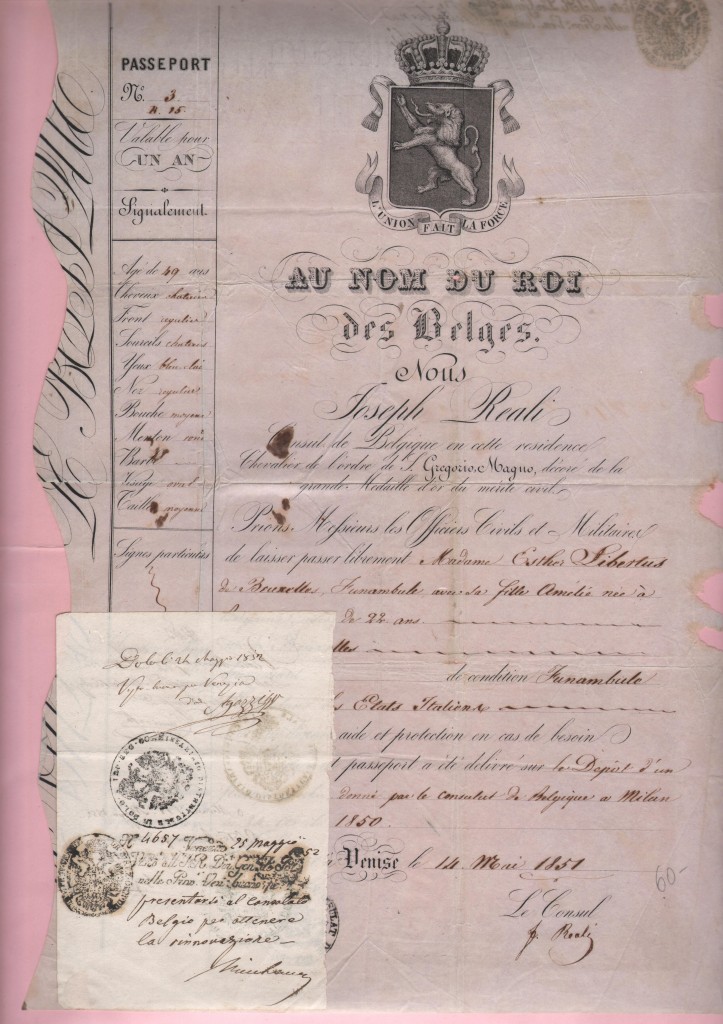 PASSEPORT
N° 3
R. 15
Valable pour
UN AN
Signalement.
Agé de 49 ans
Cheveux
Front regulier
Sourcils
Yeux
Nez regulier
Bouche moyenne
Menton
Barbe
Visage oval
Taille moyenne
Signes particuliers
L'UNION FAIT LA FORCE
AU NOM DU ROI
des Belges.
Nous
Joseph Reali
Consul de Belgique en cette residence
Chevalier de l'ordre de S. Gregorio Magno, décoré de la
grande Medaille d'or du mérite civil
Prions Messieurs les Officiers Civils et Militaires
de laisser passer librement Madame Esther Libertus
de Bruxelles, Funambule avec sa fille Amélie née à
de 22 ans
de condition Funambule
Etats Italiens
aide et protection en cas de besoin
passeport a été delivré sur le Depôt d'un
donné par le consulat de Belgique a Milan
1850.
Venise le 14 Mai 1851
Le Consul
J. Reali
60-
24 Maggio 1852
per Venezia
N° 4657
25 maggio
52
presentarsi al consolato
Belgio per ottenere
la rinnovazione